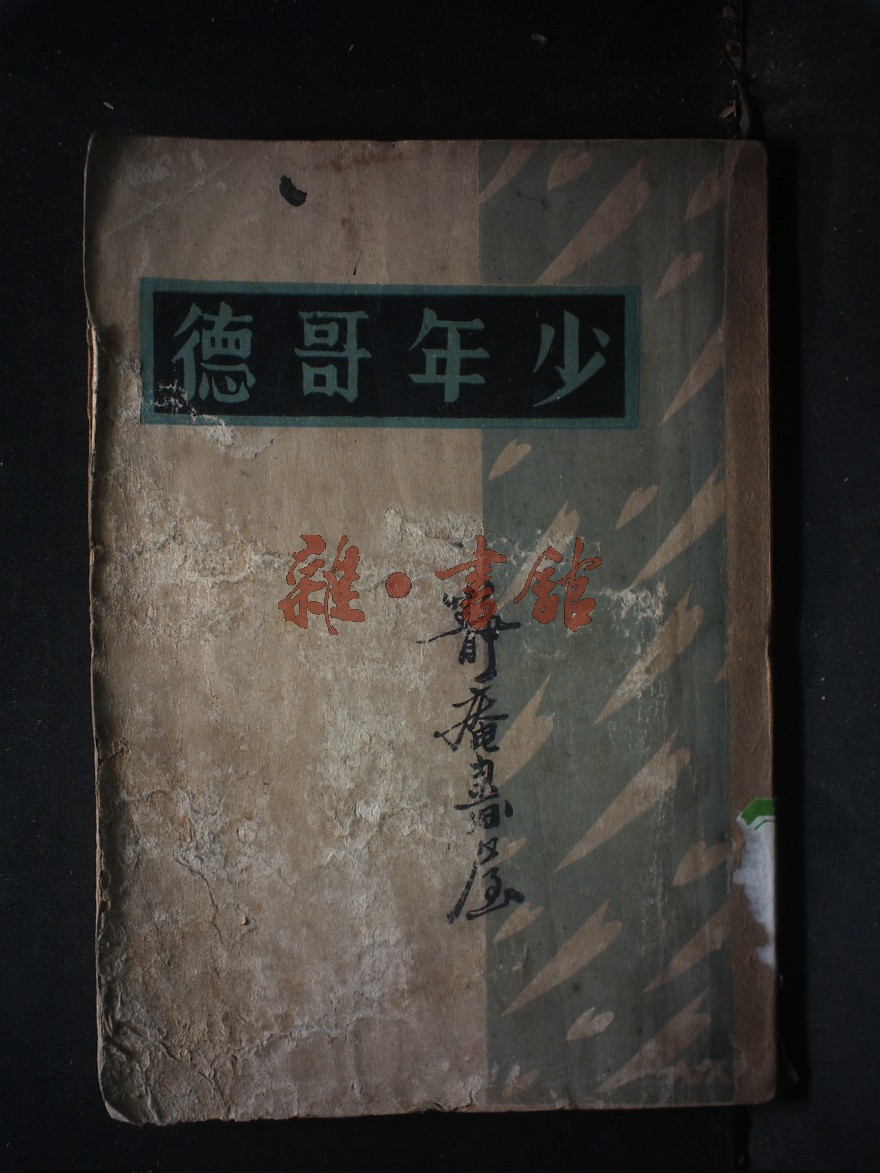 少年哥德
雜·書館
庵書屋